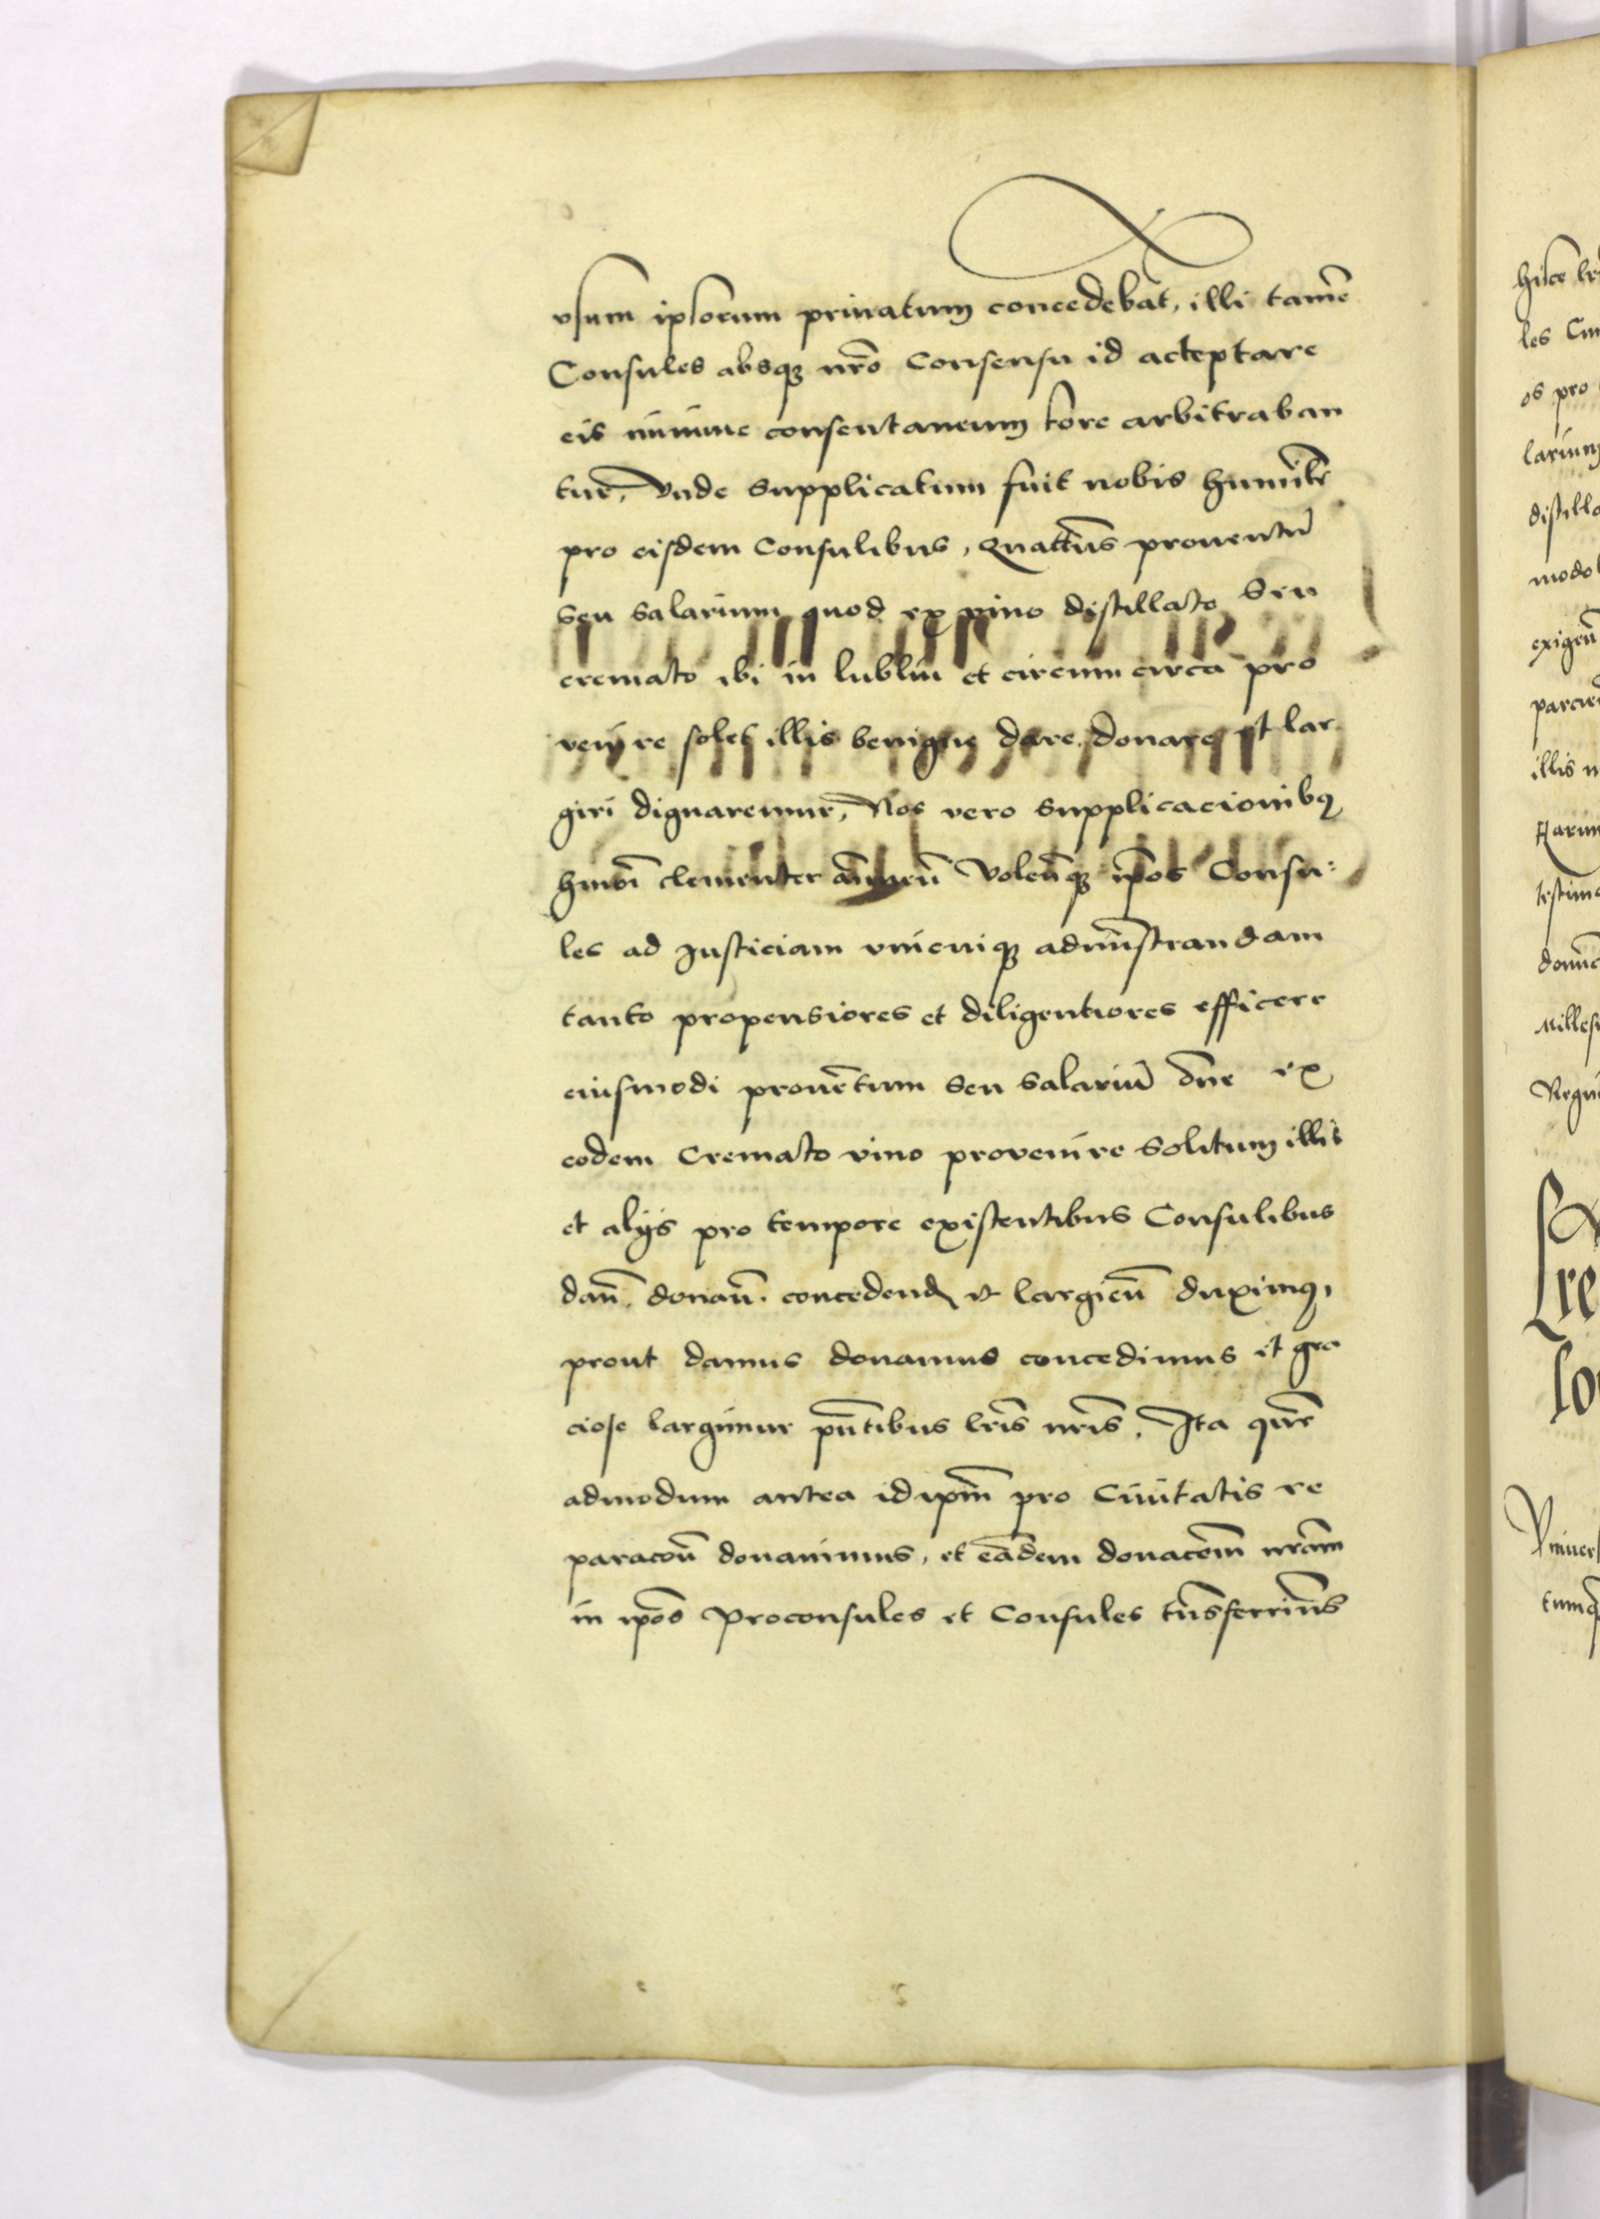 vsum ipsorum priuatum concedebat, illi tamē
Consules absqꝫ nr̄o Consensu id acceptare
eis minime consentaneum fore arbitraban
tur, Vnde supplicatum fuit nobis humilit̄
pro eisdem Consulibus, Quaten̄s prouentū
seu salarium quod ex vino distillato Seu
cremato ibi in lublin et circum circa pro
venire solet illis benigne dare. donare et lar
giri dignaremur, Nos vero supplicacionibꝯ
hm̄ōi clementer ān̄uen̄ Volen̄qꝫ ip̄os Consu:
les ad Justiciam vnicuiqꝫ admīstrandam
tanto propensiores et diligentiores efficere
eiusmodi prouētum seu salariū ōn̄e ex
eodem Cremato vino provenire Solitum illis
et alijs pro tempore existentibus Consulibus
dan̄. donan̄. concedend et largien̄ duximꝯ,
prout damus donamus concedimus et gra
ciose largimur pn̄tibus lr̄is nr̄is. Ita quē
admodum antea id ip̄m pro Ciuitatis re
paracōn̄ donauimus, et eādem donacōem nr̄am
in ip̄os Proconsules et Consules tn̄sferrim̄s
hisce
les
os pro
larium
distilla
modo
exigen̄
illis
testimo
Millesi
Regni
lo
Vniuers
tumqꝫ